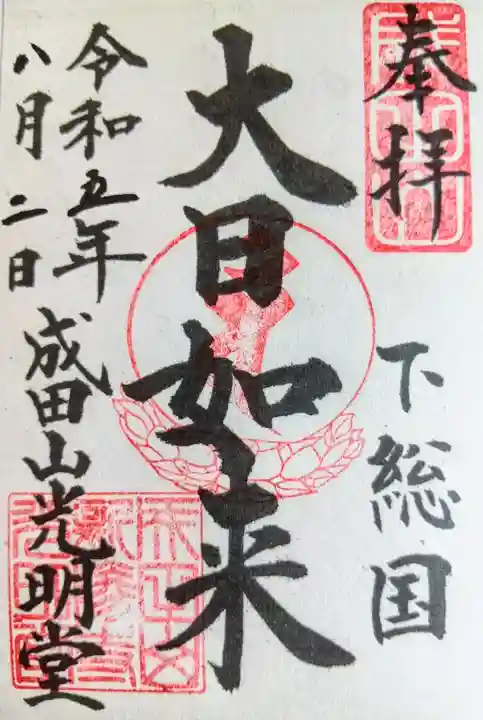 奉拝
下総国
大日如来
令和五年
八月二日
成田山光明堂